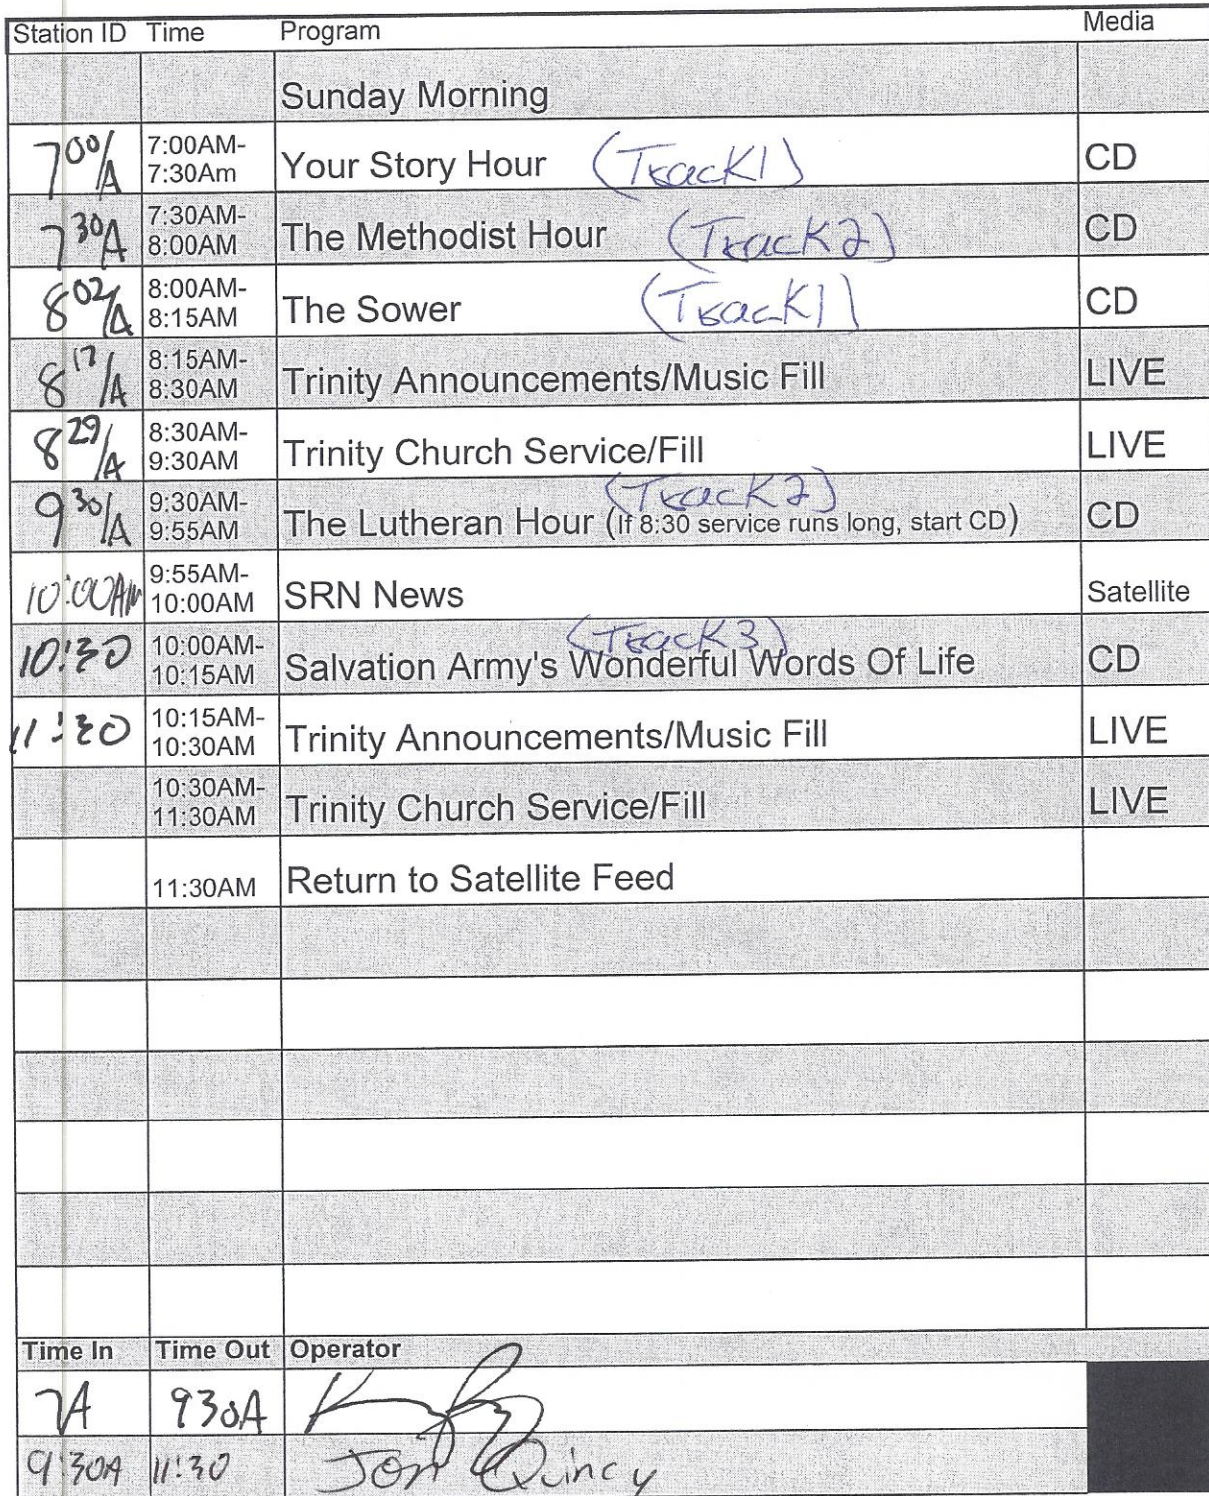 Station ID Time Program Media
Sunday Morning
7:00/A 7:00AM-7:30Am Your Story Hour (Track1) CD
7:30A 7:30AM-8:00AM The Methodist Hour (Track2) CD
8:02/A 8:00AM-8:15AM The Sower (Track1) CD
8:17/A 8:15AM-8:30AM Trinity Announcements/Music Fill LIVE
8:29/A 8:30AM-9:30AM Trinity Church Service/Fill LIVE
(Track2)
9:30/A 9:30AM-9:55AM The Lutheran Hour (If 8:30 service runs long, start CD) CD
10:00AM 9:55AM-10:00AM SRN News Satellite
(Track3)
10:30 10:00AM-10:15AM Salvation Army's Wonderful Words Of Life CD
11:30 10:15AM-10:30AM Trinity Announcements/Music Fill LIVE
10:30AM-11:30AM Trinity Church Service/Fill LIVE
11:30AM Return to Satellite Feed
Time In Time Out Operator
7A 930A
9:30A 11:30 Jon Quincy